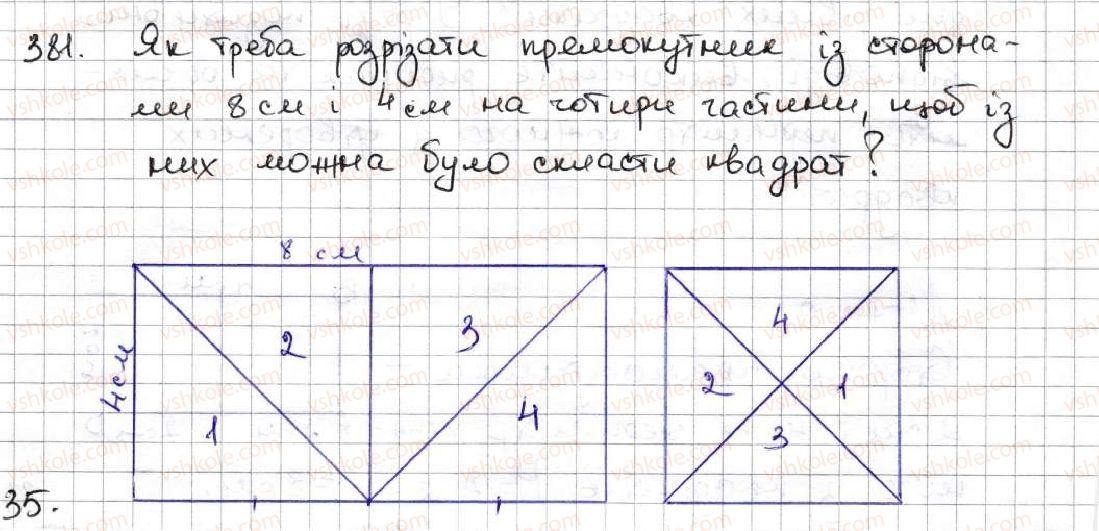 381. Як треба розрізати прямокутник із сторона-
ми 8 см і 4 см на чотири частини, щоб із
них можна було скласти квадрат?
8 см
4 см
2
3
1
4
4
2
1
3
35.
vshkole.com